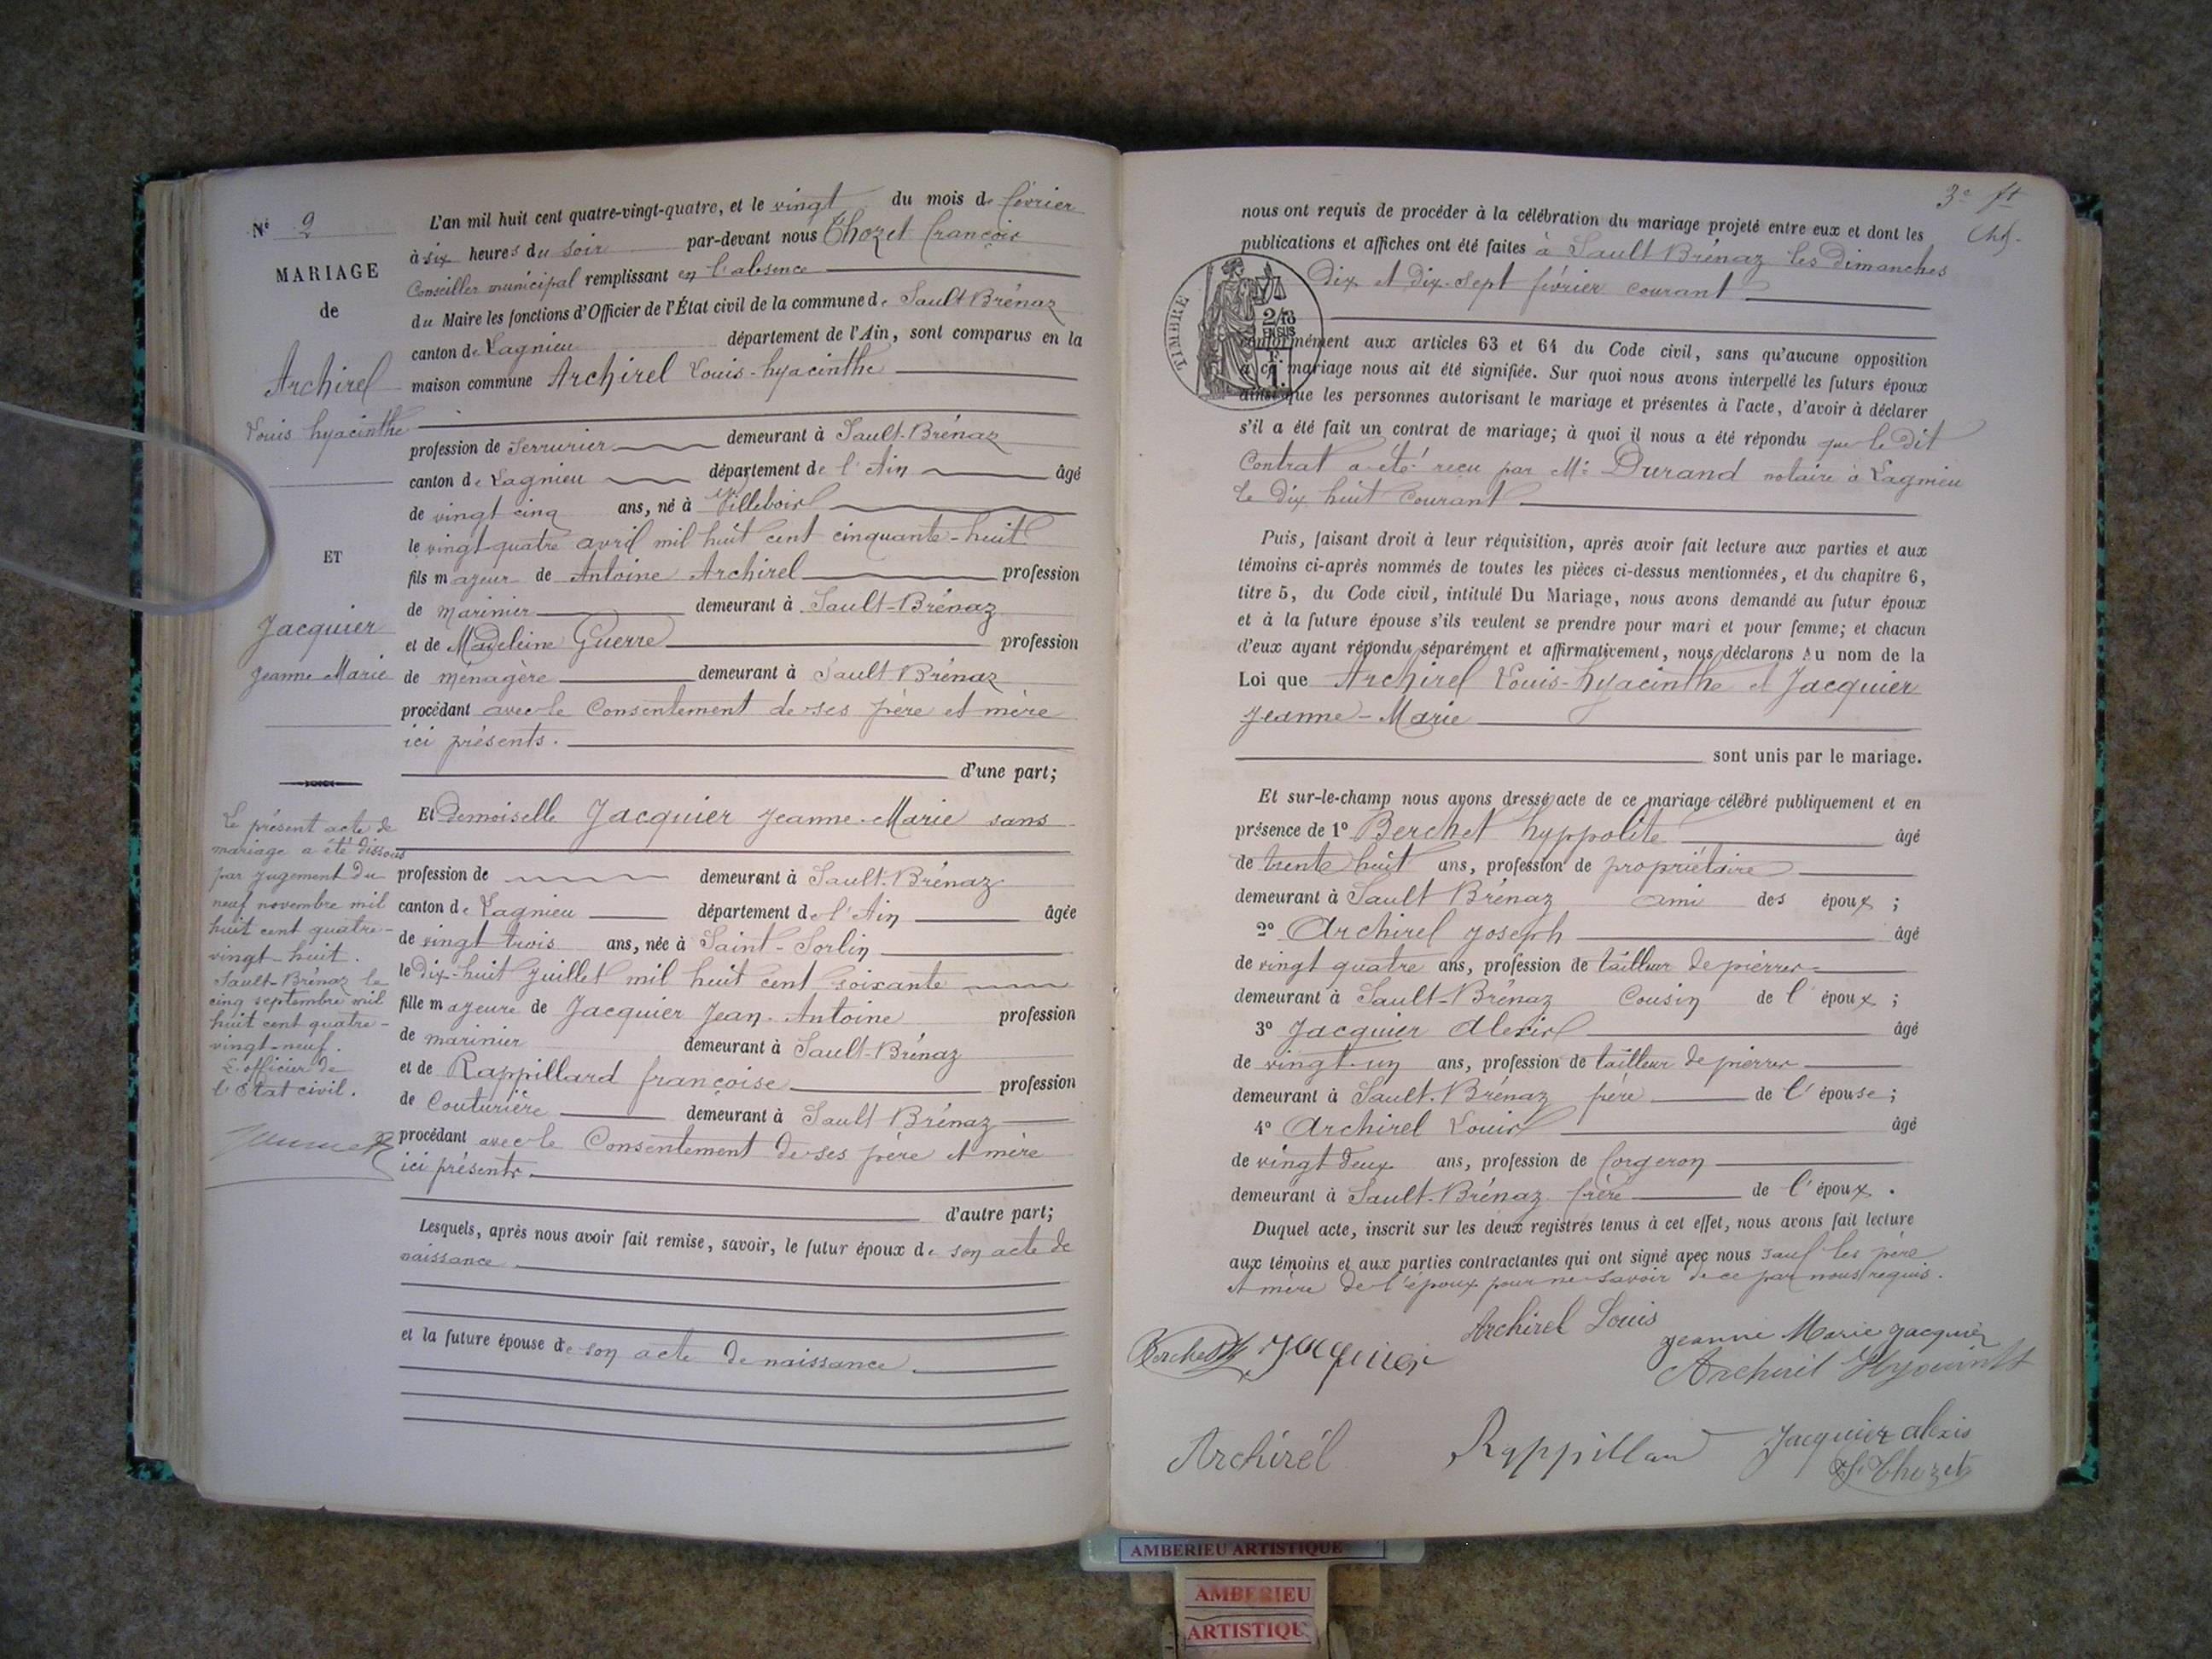 N° 2
MARIAGE
de
Archirel
Louis hyacinthe
ET
Jacquier
Jeanne Marie
Le présent acte de
mariage a été dissous
par jugement du
neuf novembre mil
huit cent quatre-
vingt-huit.
Sault-Brénaz le
cinq septembre mil
huit cent quatre-
vingt-neuf.
L'officier de
l'Etat civil.
L'an mil huit cent quatre-vingt-quatre, et le vingt du mois de février
à six heures du soir par-devant nous Thozet françois
Conseiller municipal remplissant en l'absence
du Maire les fonctions d'Officier de l'État civil de la commune de Sault Brénaz
canton de Lagnieu département de l'Ain, sont comparus en la
maison commune Archirel Louis-hyacinthe
profession de Serrurier demeurant à Sault-Brénaz
canton de Lagnieu département de l'Ain âgé
de vingt cinq ans, né à Villebois
le vingt-quatre avril mil huit cent cinquante-huit
fils majeur de Antoine Archirel profession
de marinier demeurant à Sault-Brénaz
et de Madeleine Guerre profession
de ménagère demeurant à Sault Brénaz
procédant avec le Consentement de ses père et mère
ici présents.
d'une part;
Et Demoiselle Jacquier Jeanne-Marie sans
profession de demeurant à Sault-Brénaz
canton de Lagnieu département de l'Ain âgée
de vingt trois ans, née à Saint-Sorlin
le dix-huit Juillet mil huit cent soixante
fille majeure de Jacquier Jean-Antoine profession
de marinier demeurant à Sault-Brénaz
et de Rappillard françoise profession
de Couturière demeurant à Sault Brénaz
procédant avec le Consentement de ses père et mère
ici présents.
d'autre part;
Lesquels, après nous avoir fait remise, savoir, le futur époux de son acte de
naissance
et la future épouse de son acte de naissance.
3e ft
nous ont requis de procéder à la célébration du mariage projeté entre eux et dont les
publications et affiches ont été faites à Sault Brénaz les Dimanches
Dix et dix-sept février courant
TIMBRE
2/10
EN SUS
F.
1.
conformément aux articles 63 et 64 du Code civil, sans qu'aucune opposition
à ce mariage nous ait été signifiée. Sur quoi nous avons interpellé les futurs époux
ainsi que les personnes autorisant le mariage et présentes à l'acte, d'avoir à déclarer
s'il a été fait un contrat de mariage; à quoi il nous a été répondu que le dit
Contrat a été reçu par Me Durand notaire à Lagnieu
le Dix huit Courant
Puis, faisant droit à leur réquisition, après avoir fait lecture aux parties et aux
témoins ci-après nommés de toutes les pièces ci-dessus mentionnées, et du chapitre 6,
titre 5, du Code civil, intitulé Du Mariage, nous avons demandé au futur époux
et à la future épouse s'ils veulent se prendre pour mari et pour femme; et chacun
d'eux ayant répondu séparément et affirmativement, nous déclarons Au nom de la
Loi que Archirel Louis-hyacinthe et Jacquier
Jeanne-Marie
sont unis par le mariage.
Et sur-le-champ nous avons dressé acte de ce mariage célébré publiquement et en
présence de 1° Berchet hyppolite âgé
de trente huit ans, profession de propriétaire
demeurant à Sault Brénaz ami des époux ;
2° Archirel Joseph âgé
de vingt quatre ans, profession de tailleur de pierres
demeurant à Sault-Brénaz Cousin de l'époux ;
3° Jacquier Alexis âgé
de vingt-un ans, profession de tailleur de pierres
demeurant à Sault-Brénaz frère de l'épouse ;
4° Archirel Louis âgé
de vingt deux ans, profession de forgeron
demeurant à Sault-Brénaz frère de l'époux .
Duquel acte, inscrit sur les deux registres tenus à cet effet, nous avons fait lecture
aux témoins et aux parties contractantes qui ont signé avec nous sauf les père
et mère de l'époux pour ne savoir de ce par nous requis.
Archirel Louis
Jeanne Marie Jacquier
Berchet Jacquier
Archirel Hyacinthe
Archirel
Rappillard
Jacquier alexis
F. Thozet
AMBERIEU ARTISTIQUE
AMBERIEU
ARTISTIQUE